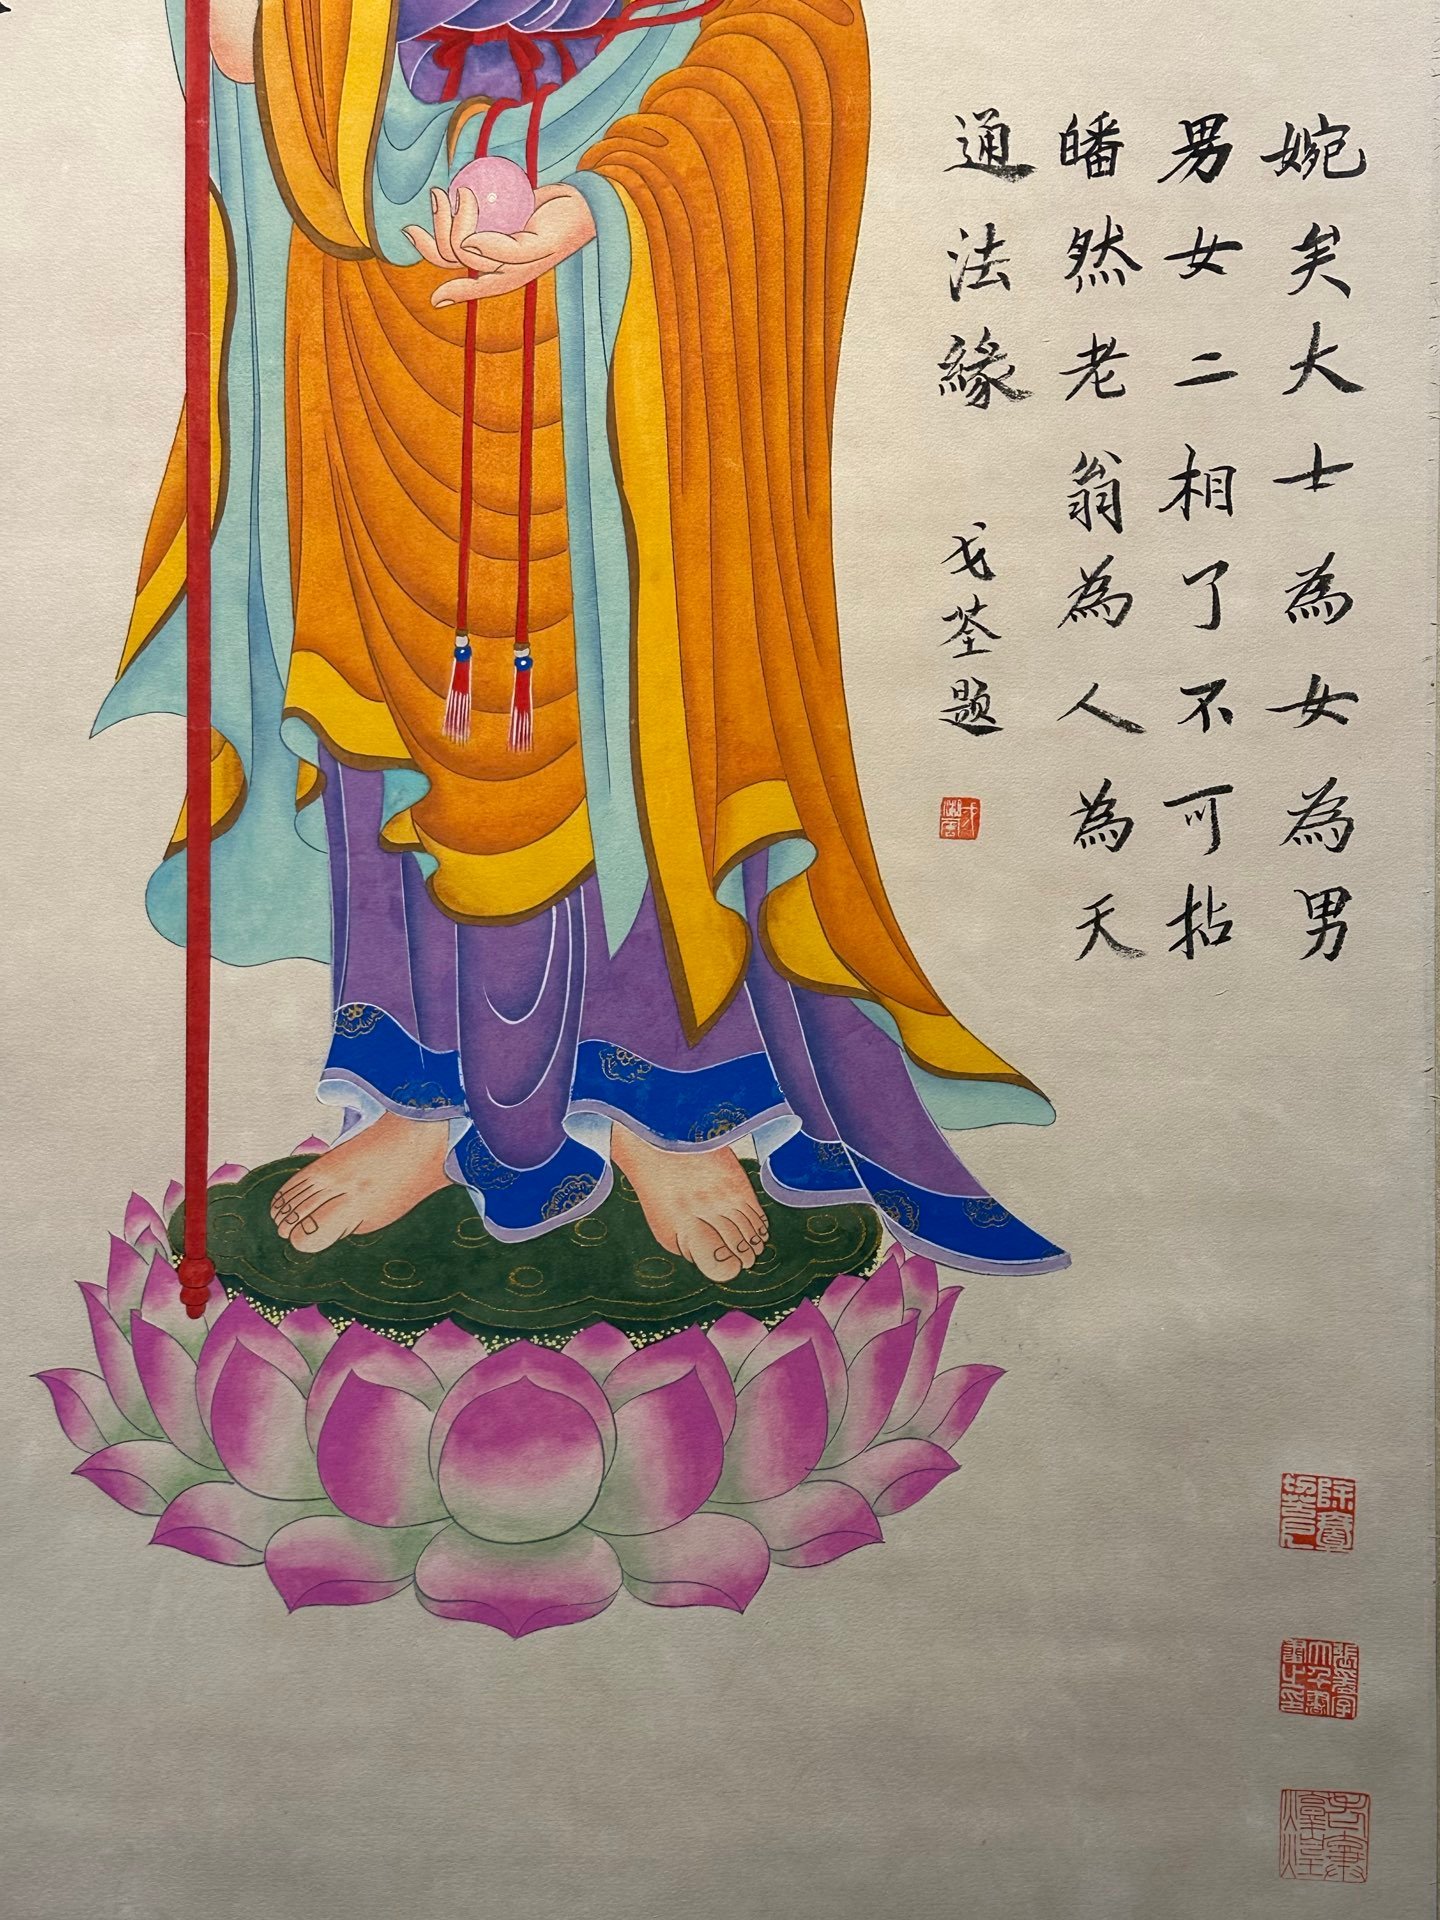 婉矣大士為女為男
男女二相了不可拈
皤然老翁為人為天
通法緣
戈荃題